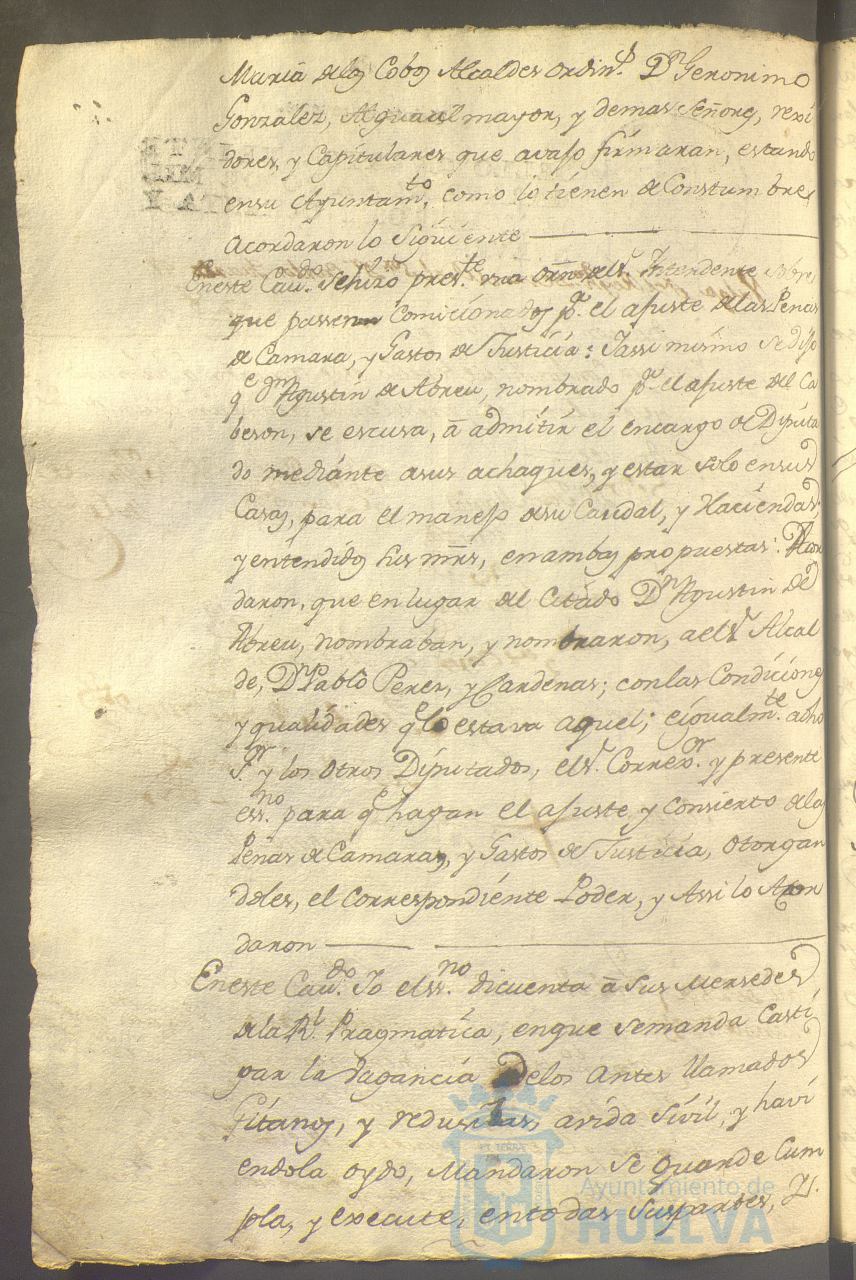 Maria delos Cobos Alcaldes ordins. Dn. Geronimo
Gonzalez, Alguacil mayor, y demas Señores, rexi
dores, y Capitulares que avaso firmaran, estando
ensu Ayuntamto. como lo tienen de Constumbre,
acordaron lo Siguiente
Eneste Cavdo. sehizo preste. una orñ. delSr. Intendente sobre
que passen Comicionados pa. el ajuste delas Penas
de Camara, y Gastos de Justicia: Iassi mismo se dijo
qe Dn Agustin de Abreu, nombrado pa. el ajuste del Ca
beson, se escusa, â admitir el encargo de Diputa
do mediante asus achaques, y estar solo ensus
Casas, para el manejo desu Caudal, y Haciendas,
y entendidos sus mrs, en ambas propuestas: Acor
daron, que en lugar del Citado Dn Agustin de
Abreu, nombraban, y nombraron, aelSr. Alcal
de, Dn Pablo Peres, y Cardenas; con las Condiciones
y qualidades qe lo estava aquel; eigualmte. adho
Sor. y los otros Diputados, elSr. Correxor. y presente
essno. para qe hagan el ajuste y consierto delas
Penas de Camaras, y Gastos de Justicia, otorgan
doles, el Correspondiente Poder, y Assi lo Acor
daron
Eneste Cavdo. Io elssno. dicuenta â sus Mersedes
dela Rl. Pragmatica, enque semanda Casti
gar la Vagancia delos antes llamados
Gitanos, y redusirlos, avida sivil, y havi
endola oydo, Mandaron se Guarde Cum
pla, y execute, entodas suspartes, Y.
Ayuntamiento de
HUELVA